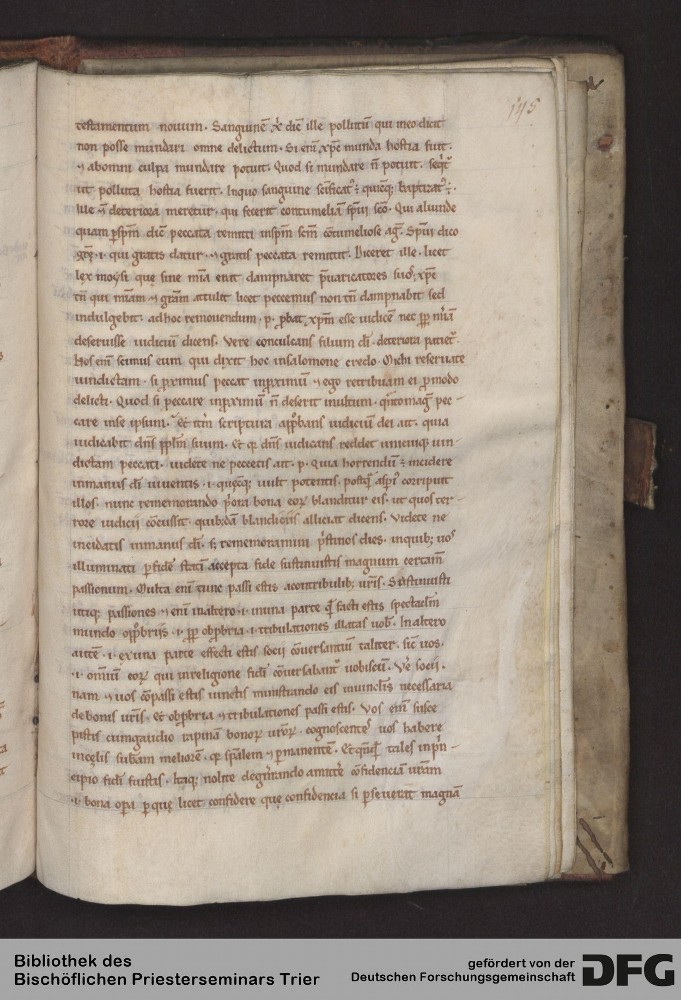 145
testamentum nouum. Sanguinē x̄ dīc ille pollutū qui in eo dicit
non posse mundari omne delictum. Si eni xp̄c munda hostia fuit.
⁊ ab omni culpa mundare potuit. Quod si mundare n̄ potuit. seqͥt
ut polluta hostia fuerit. In quo sanguine sc̄ificatꝰ ÷ quicq; baptizatꝰ ÷.
Ille deteriora meretur. qui fecerit contumeliā sp̄ui sc̄o. Qui aliunde
quam ꝑ sp̄m dīc peccata remitti in sp̄m sc̄m contumeliose agͭ. Sp̄ui dico
gr̄ę .i. qui gratis datur. ⁊ gratis peccata remittit. Diceret ille. licet
lex moysi quę sine mīa erat dampnaret p̄uaricatores suoˢ xp̄c
tn̄ qui mīam ⁊ gr̄am attulit licet peccemus non tn̄ dampnabit sed
indulgebit. ad hoc remouendum .p. ꝓbat xp̄m esse iudicē nec ꝓp̄ mīam
deseruisse iudiciū dicens. Vere conculcans filium dī. deteriora patietͬ.
Nos eni scimus eum qui dixit hoc in salomone credo. Michi reseruate
uindictam. si ꝓximus peccat in ꝓximū ⁊ ego retribuam ei ꝓ modo
delicti. Quod si peccare in ꝓximū n̄ deserit inultum. qͥnto magͥ pec-
care in se ipsum. Et itm̄ scriptura apꝓbans iudicium dei ait. quia
iudicabit dn̄s ppl̄m suum. Et qͥ dn̄s iudicans reddet unicuiq; uin-
dictam peccati. uidete ne peccetis ait .p. Quia horrendū ÷ incidere
in manus dī uiuentis .i. quęcq; uult potentis. postqͣ asp̄i corripuit
illos. nunc rememorando p̄ora bona eoꝝ blanditur eis. ut quos ter-
rore iudicii c̄cussit. quibꝰdā blandiciis alliciat dicens. Videte ne
incidatis in manus dī. s; rememoramini p̄stinos dies. in quib; uoˢ
illuminati ꝑ fidē statī accepta fide sustinuistis magnum certam̄
passionum. Multa eni tunc passi estis a contribulib; ur̄is. Sustinuisti
itaq; passiones ⁊ eni in altero .i. in una parte qͥ facti estis spectacl̄m
mundo opꝓbriis .i. ꝓp̄ obꝓbria .i. tribulationes illatas uob̄. In altero
autē .i. ex una parte effecti estis socii c̄uersantiū taliter. sic̄ uos.
.i. omniū eoꝝ qui in religione fidī c̄uersabantͬ uobiscū. Ve socii.
nam ⁊ uos c̄passi estis uinctis ministrando eis in uincl̄is necessaria
de bonis ur̄is. Et obꝓbria ⁊ tribulationes passi estis. Vos eni susce
pistis cum gaudio rapinā bonoꝝ ur̄oꝝ. cognoscenteˢ uos habere
in cęlis subam̄ meliorē. qͥ spālem ⁊ ꝑmanentē. Et qͥcqͥ tales in p̄n-
cipio fidī fuistis. Itaq; nolite degn̄ando amitte c̄fidenciā ur̄am
.i. bona opa ꝑ quę licet confidere quę confidencia si ꝑseuerāt magnā
Bibliothek des
Bischöflichen Priesterseminars Trier
gefördert von der
Deutschen Forschungsgemeinschaft
DFG